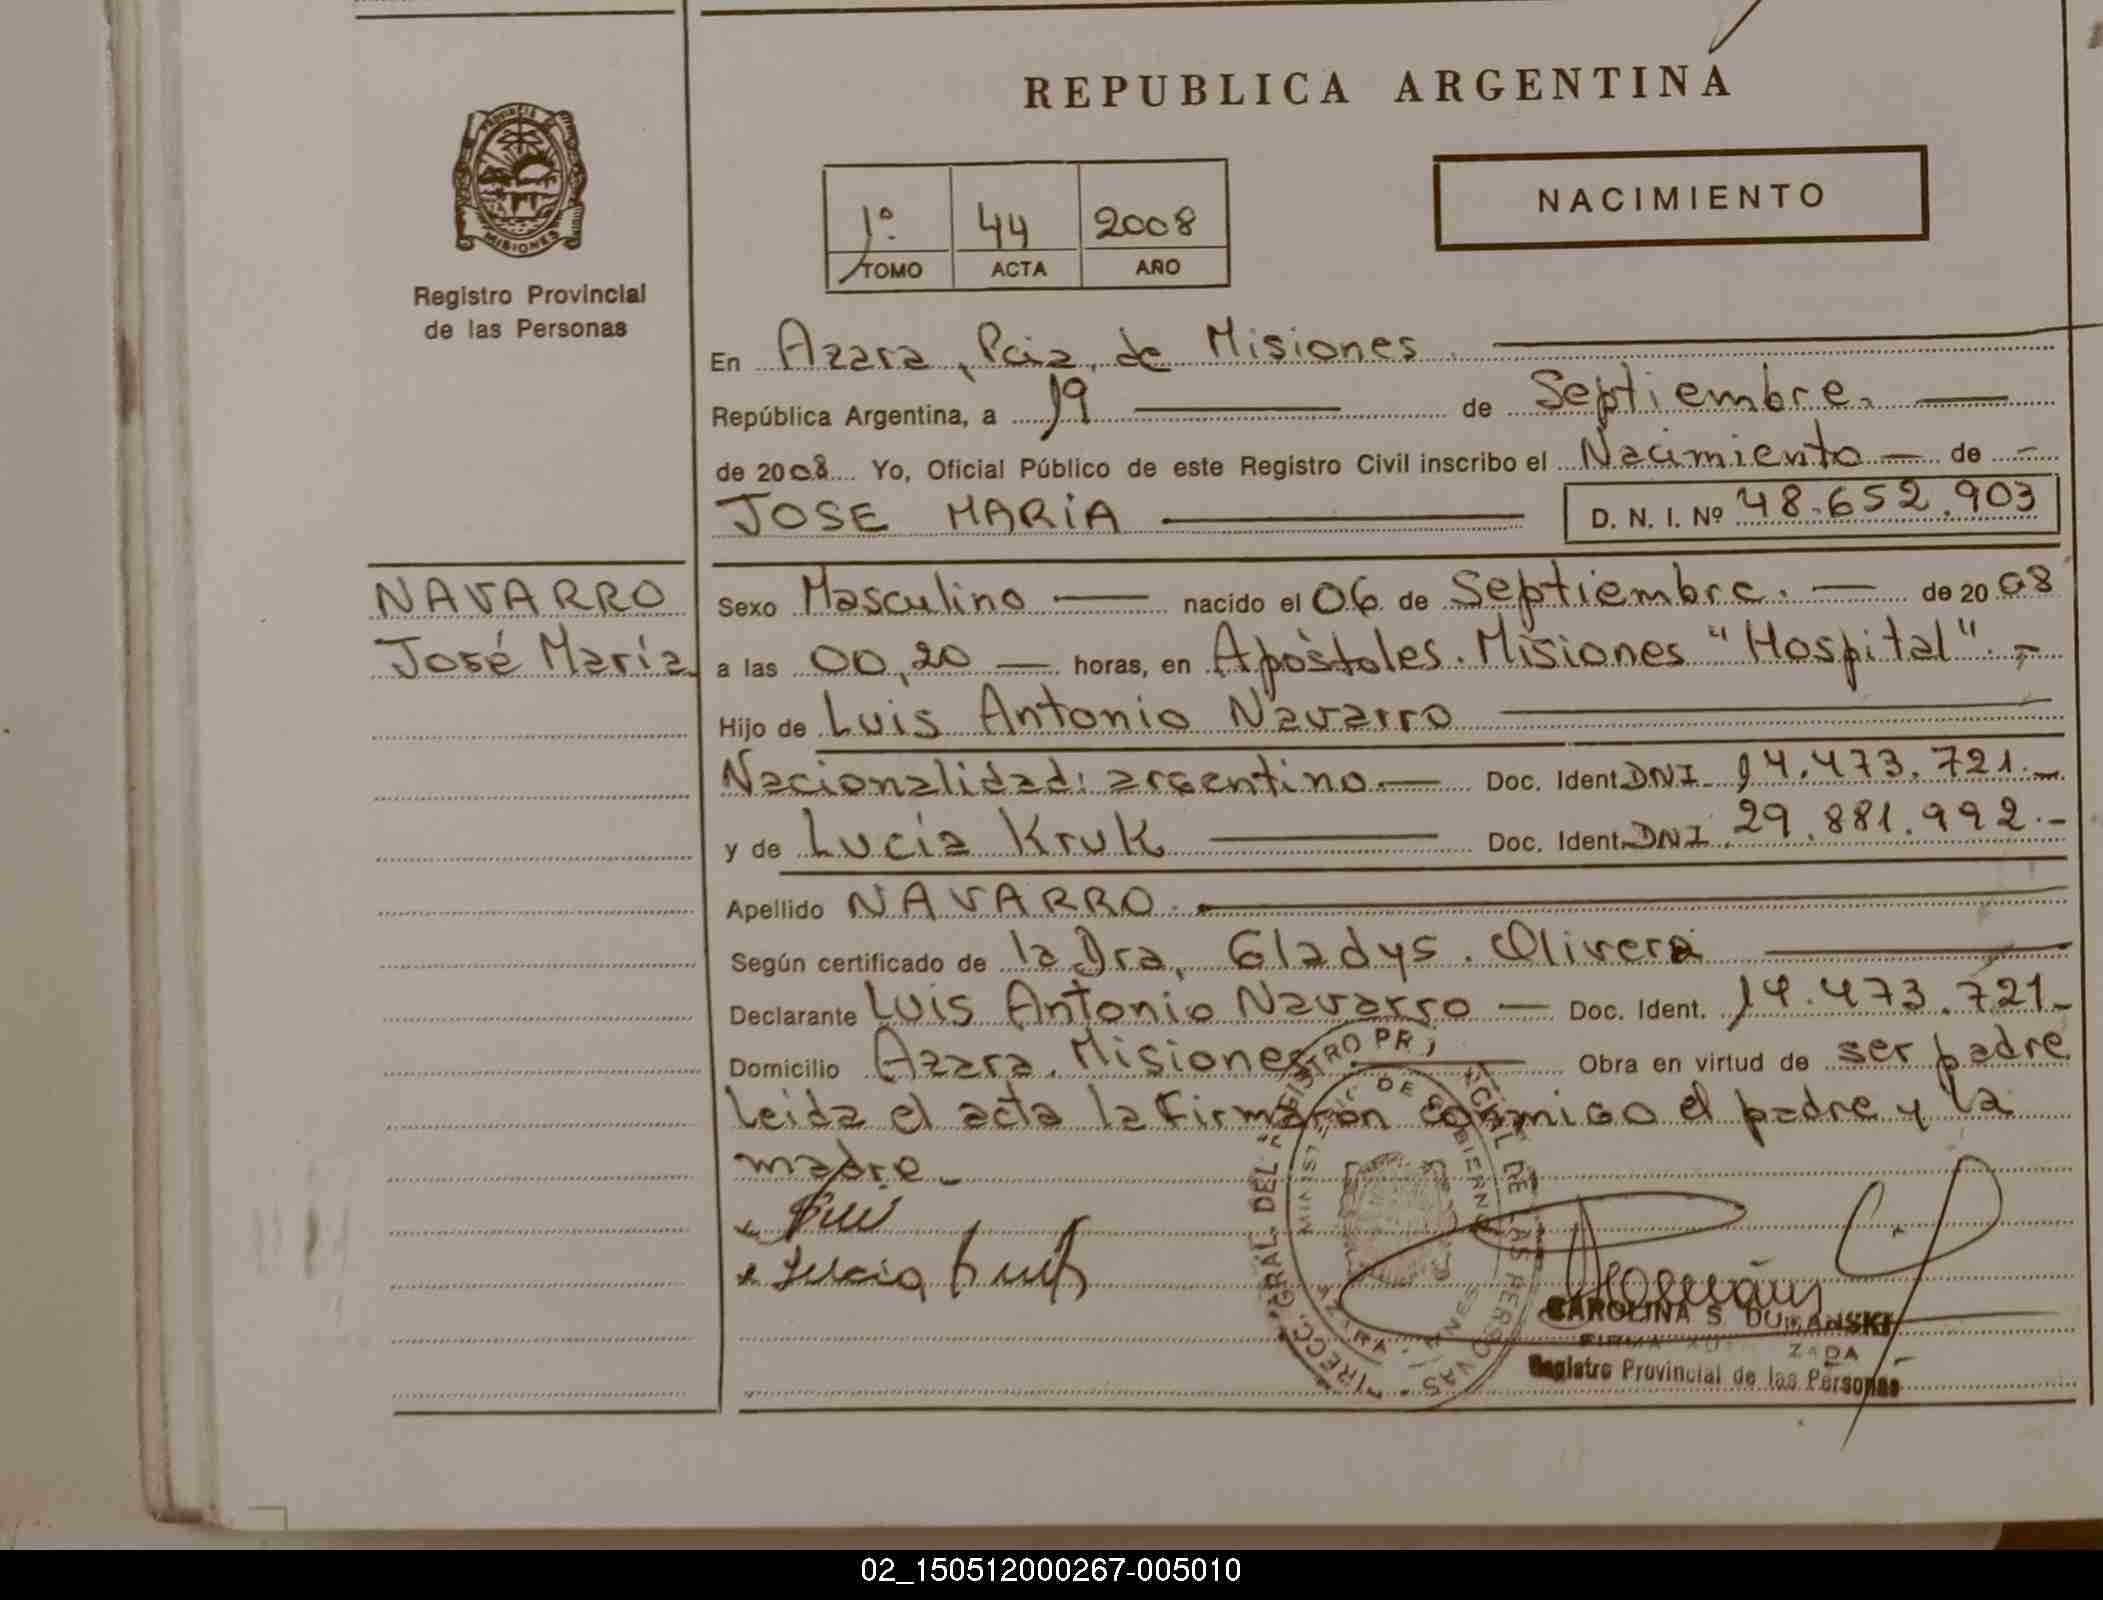 REPUBLICA ARGENTINA
PROVINCIA DE
MISIONES
Registro Provincial
de las Personas
1º 44 2008
TOMO ACTA AÑO
NACIMIENTO
En Azara, Pcia. de Misiones.
República Argentina, a 19 de Septiembre.
de 2008 Yo, Oficial Público de este Registro Civil inscribo el Nacimiento de
JOSE MARIA D. N. I. Nº 48.652.903
NAVARRO
José María
Sexo Masculino nacido el 06 de Septiembre. de 2008
a las 00,20 horas, en Apóstoles. Misiones "Hospital".
Hijo de Luis Antonio Navarro
Nacionalidad: argentino Doc. Ident. DNI 14.473.721.-
y de Lucía Kruk Doc. Ident. DNI 29.881.992.-
Apellido NAVARRO.
Según certificado de la Dra. Gladys. Olivera
Declarante Luis Antonio Navarro Doc. Ident. 14.473.721-
Domicilio Azara. Misiones Obra en virtud de ser padre
leida el acta la firmaron conmigo el padre y la
madre.
Lucia Kruk
CAROLINA S. DUMANSKI
FIRMA AUTORIZADA
Registro Provincial de las Personas
02_150512000267-005010